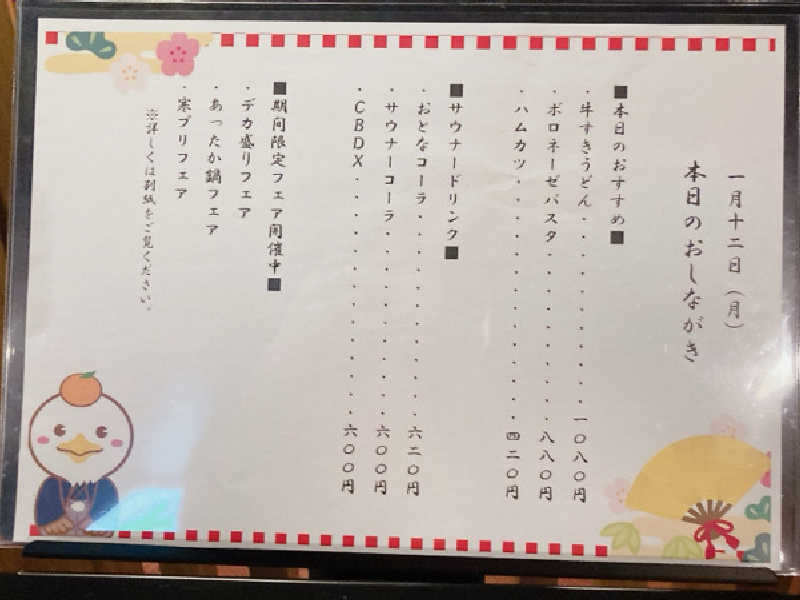 一月十二日(月)
本日のおしながき
■本日のおすすめ■
・牛すきうどん・・・・・・・・・・・一〇八〇円
・ボロネーゼパスタ・・・・・・・・・・八八〇円
・ハムカツ・・・・・・・・・・・・・・四二〇円
■サウナードリンク■
・おとなコーラ・・・・・・・・・・・・六二〇円
・サウナーコーラ・・・・・・・・・・・六〇〇円
・CBDX・・・・・・・・・・・・・・六〇〇円
■期間限定フェア開催中■
・デカ盛りフェア
・あったか鍋フェア
・寒ブリフェア
※詳しくは別紙をご覧ください。